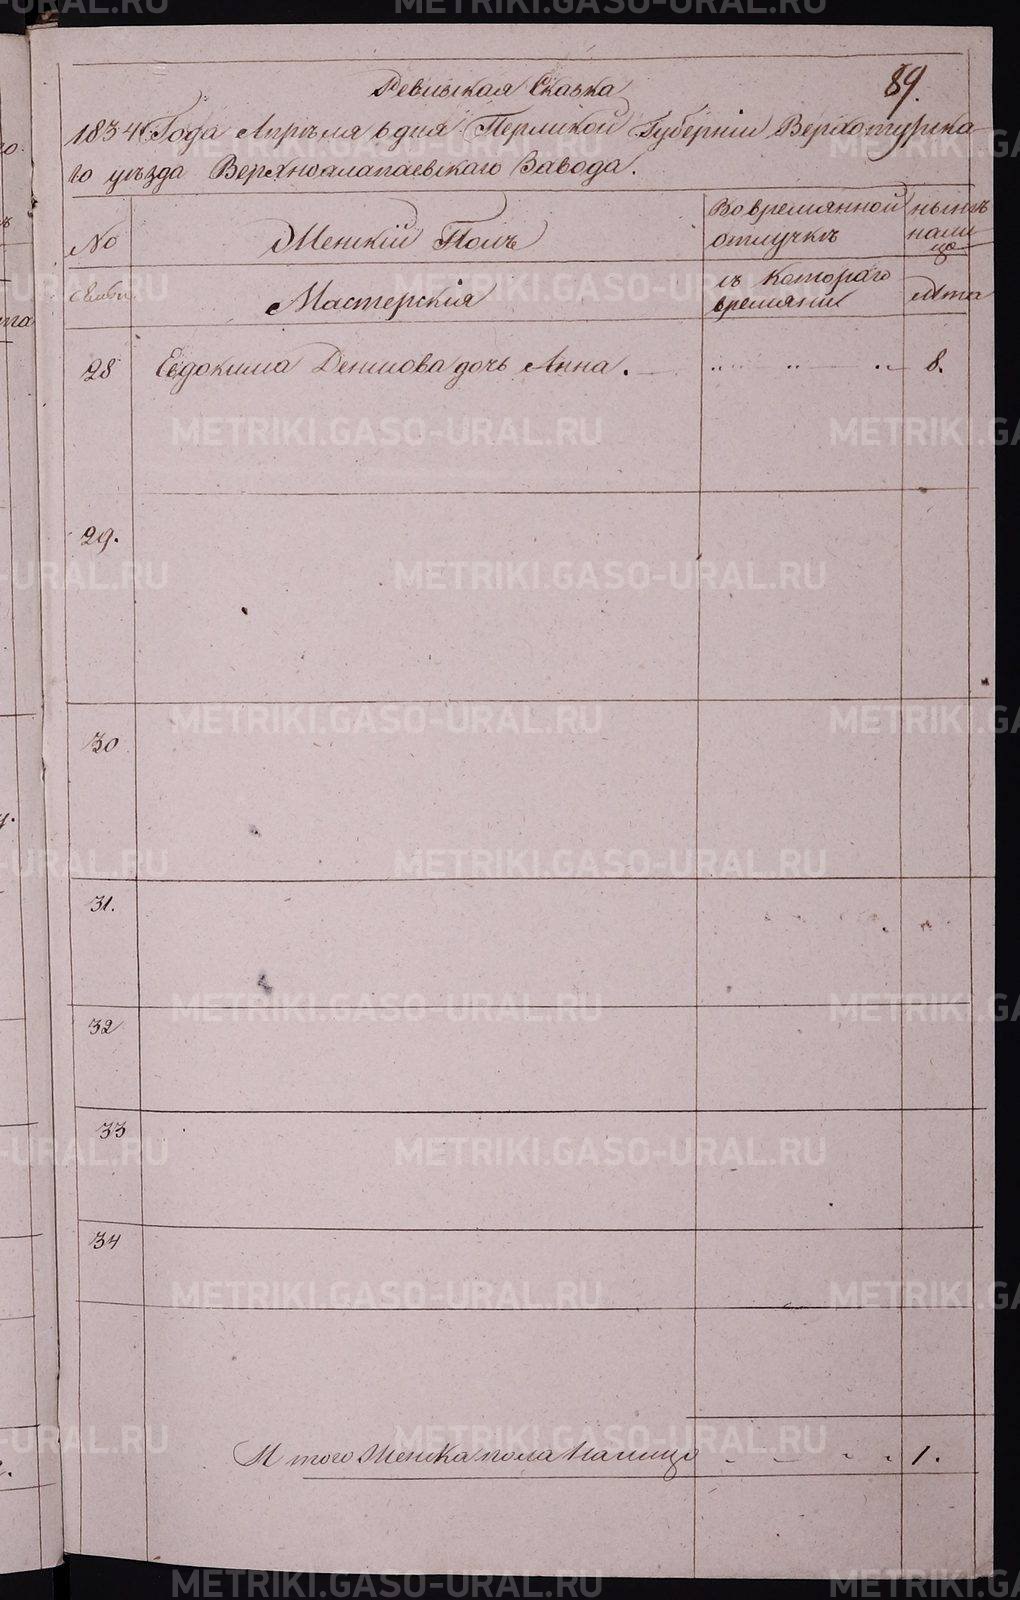 89.
Ревизская Сказка
1834 Года Апреля 6 дня Пермской Губернии Верхотурска
го уезда Верхноалапаевскаго Завода.
No
Женский Полъ
Во времянной
отлучке
ныне
нали
цо
семьи
Мастерския
съ котораго
времяни
лета
28 Евдокима Денисова дочь Анна. 8.
29.
30
31.
32
33
34
И того женска пола налицо 1.
METRIKI.GASO-URAL.RU